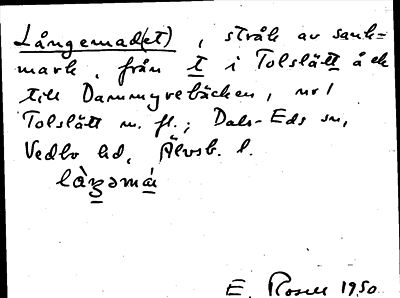 Långemad(et), stråk av sank=
mark, från t i Tolslätt åck
till Dammyrebäcken, nr 1
Tolslätt m. fl.; Dals-Eds sn,
Vedbo hd, Älvsb. l.
E. Rosell 1950